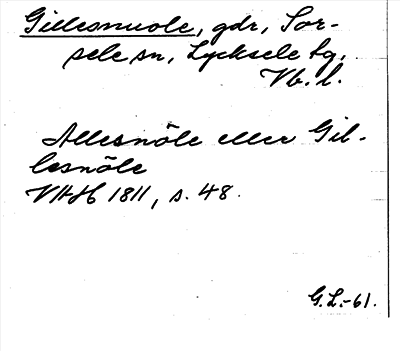 Gillesnuole, gdr, Sor-
sele sn, Lycksele lg,
Vb. l.
Allesnöle eller Gil-
lesnöle
VAH 1811, s. 48.
G.L.-61.